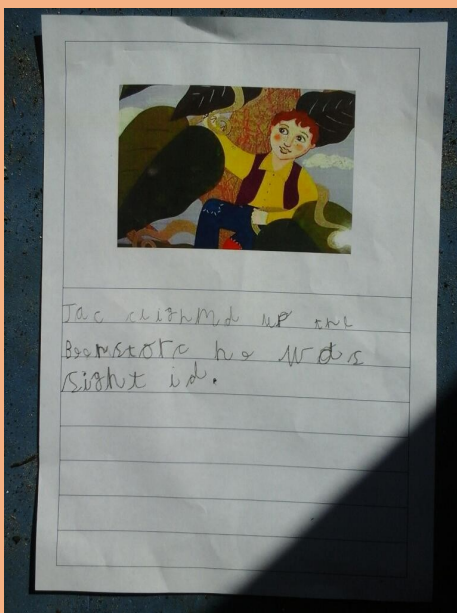 Jac clighmd up the
Beenstorc he was
sight id.